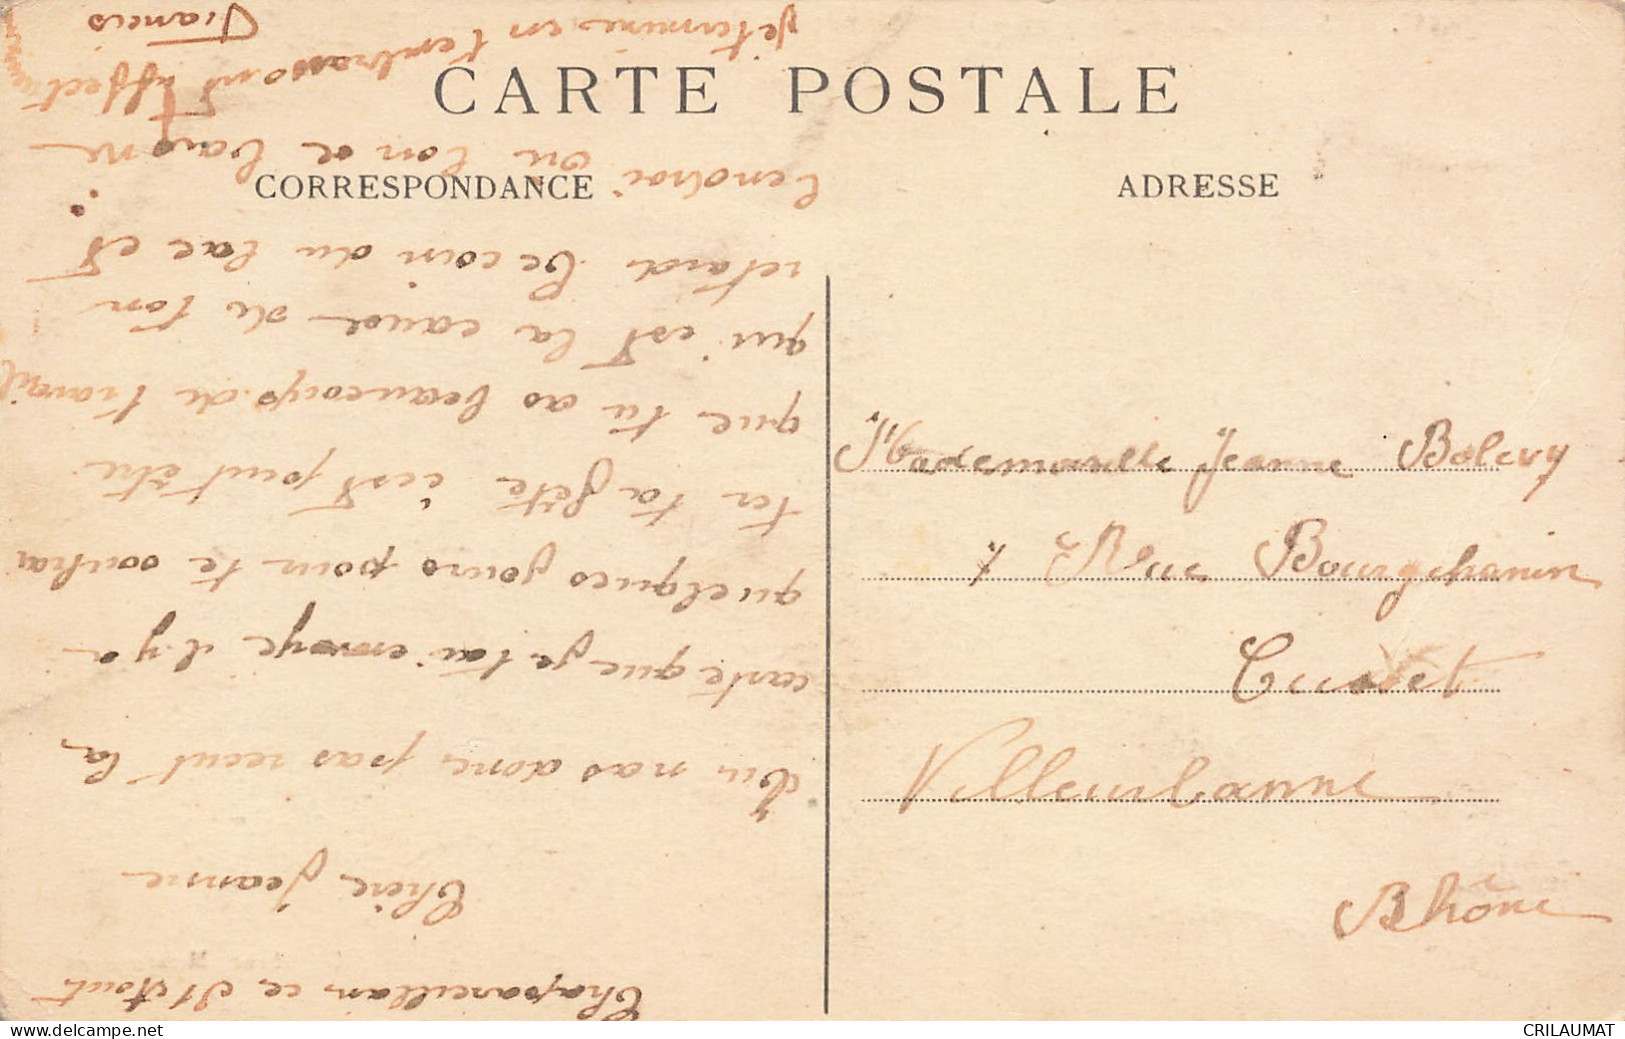 CARTE POSTALE
CORRESPONDANCE
ADRESSE
Chapareillan ce 21 Aout
Chère Jeanne
Tu nas donc pas recut la
carte que je tai envoye il y a
quelques jours pour te souhai
ter ta fête c'est peut être
que tu as beaucoup de travail
qui est la cause de ton
retard le coin du lac est
lendroi ou lon se baigne
je termine en t'embrassant Affect
Francis
Mademoiselle Jeanne Bolery
7 Rue Bourgchanin
Cusset
Villeurbanne
Rhône
www.delcampe.net
CRILAUMAT